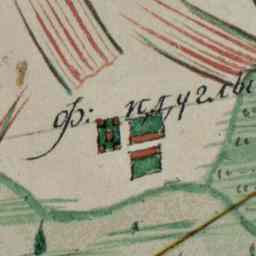 ф: п,д,углы